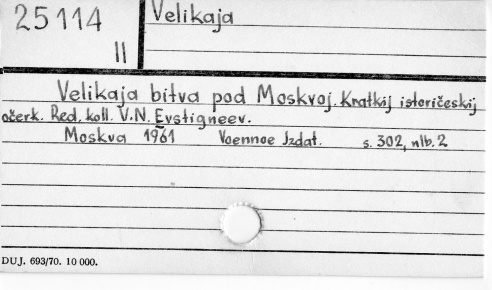 25114
II
Velikaja
Velikaja bitva pod Moskvoj. Kratkij istoričeskij
očerk. Red. koll. V.N. Evstigneev.
Moskva 1961 Voennoe Izdat. s. 302, nlb. 2
DUJ. 693/70. 10 000.